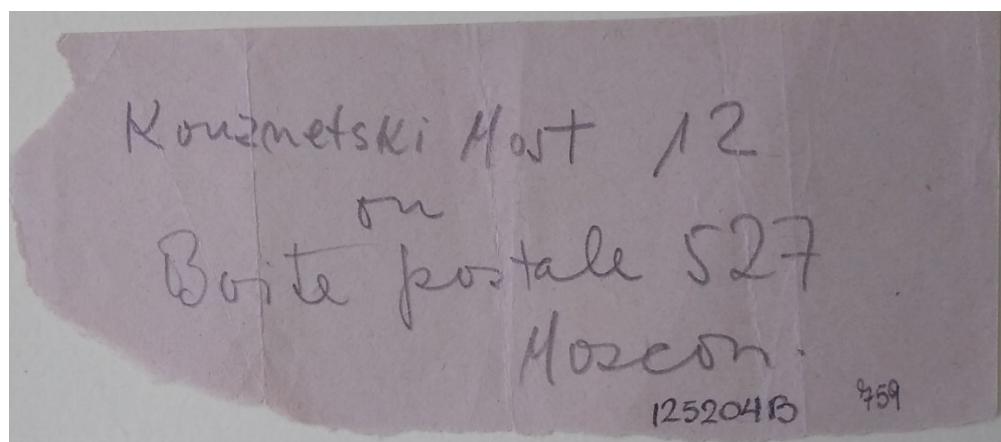 Kouznetski Most 12
ou
Boite postale 527
Moscou.
125204B 759